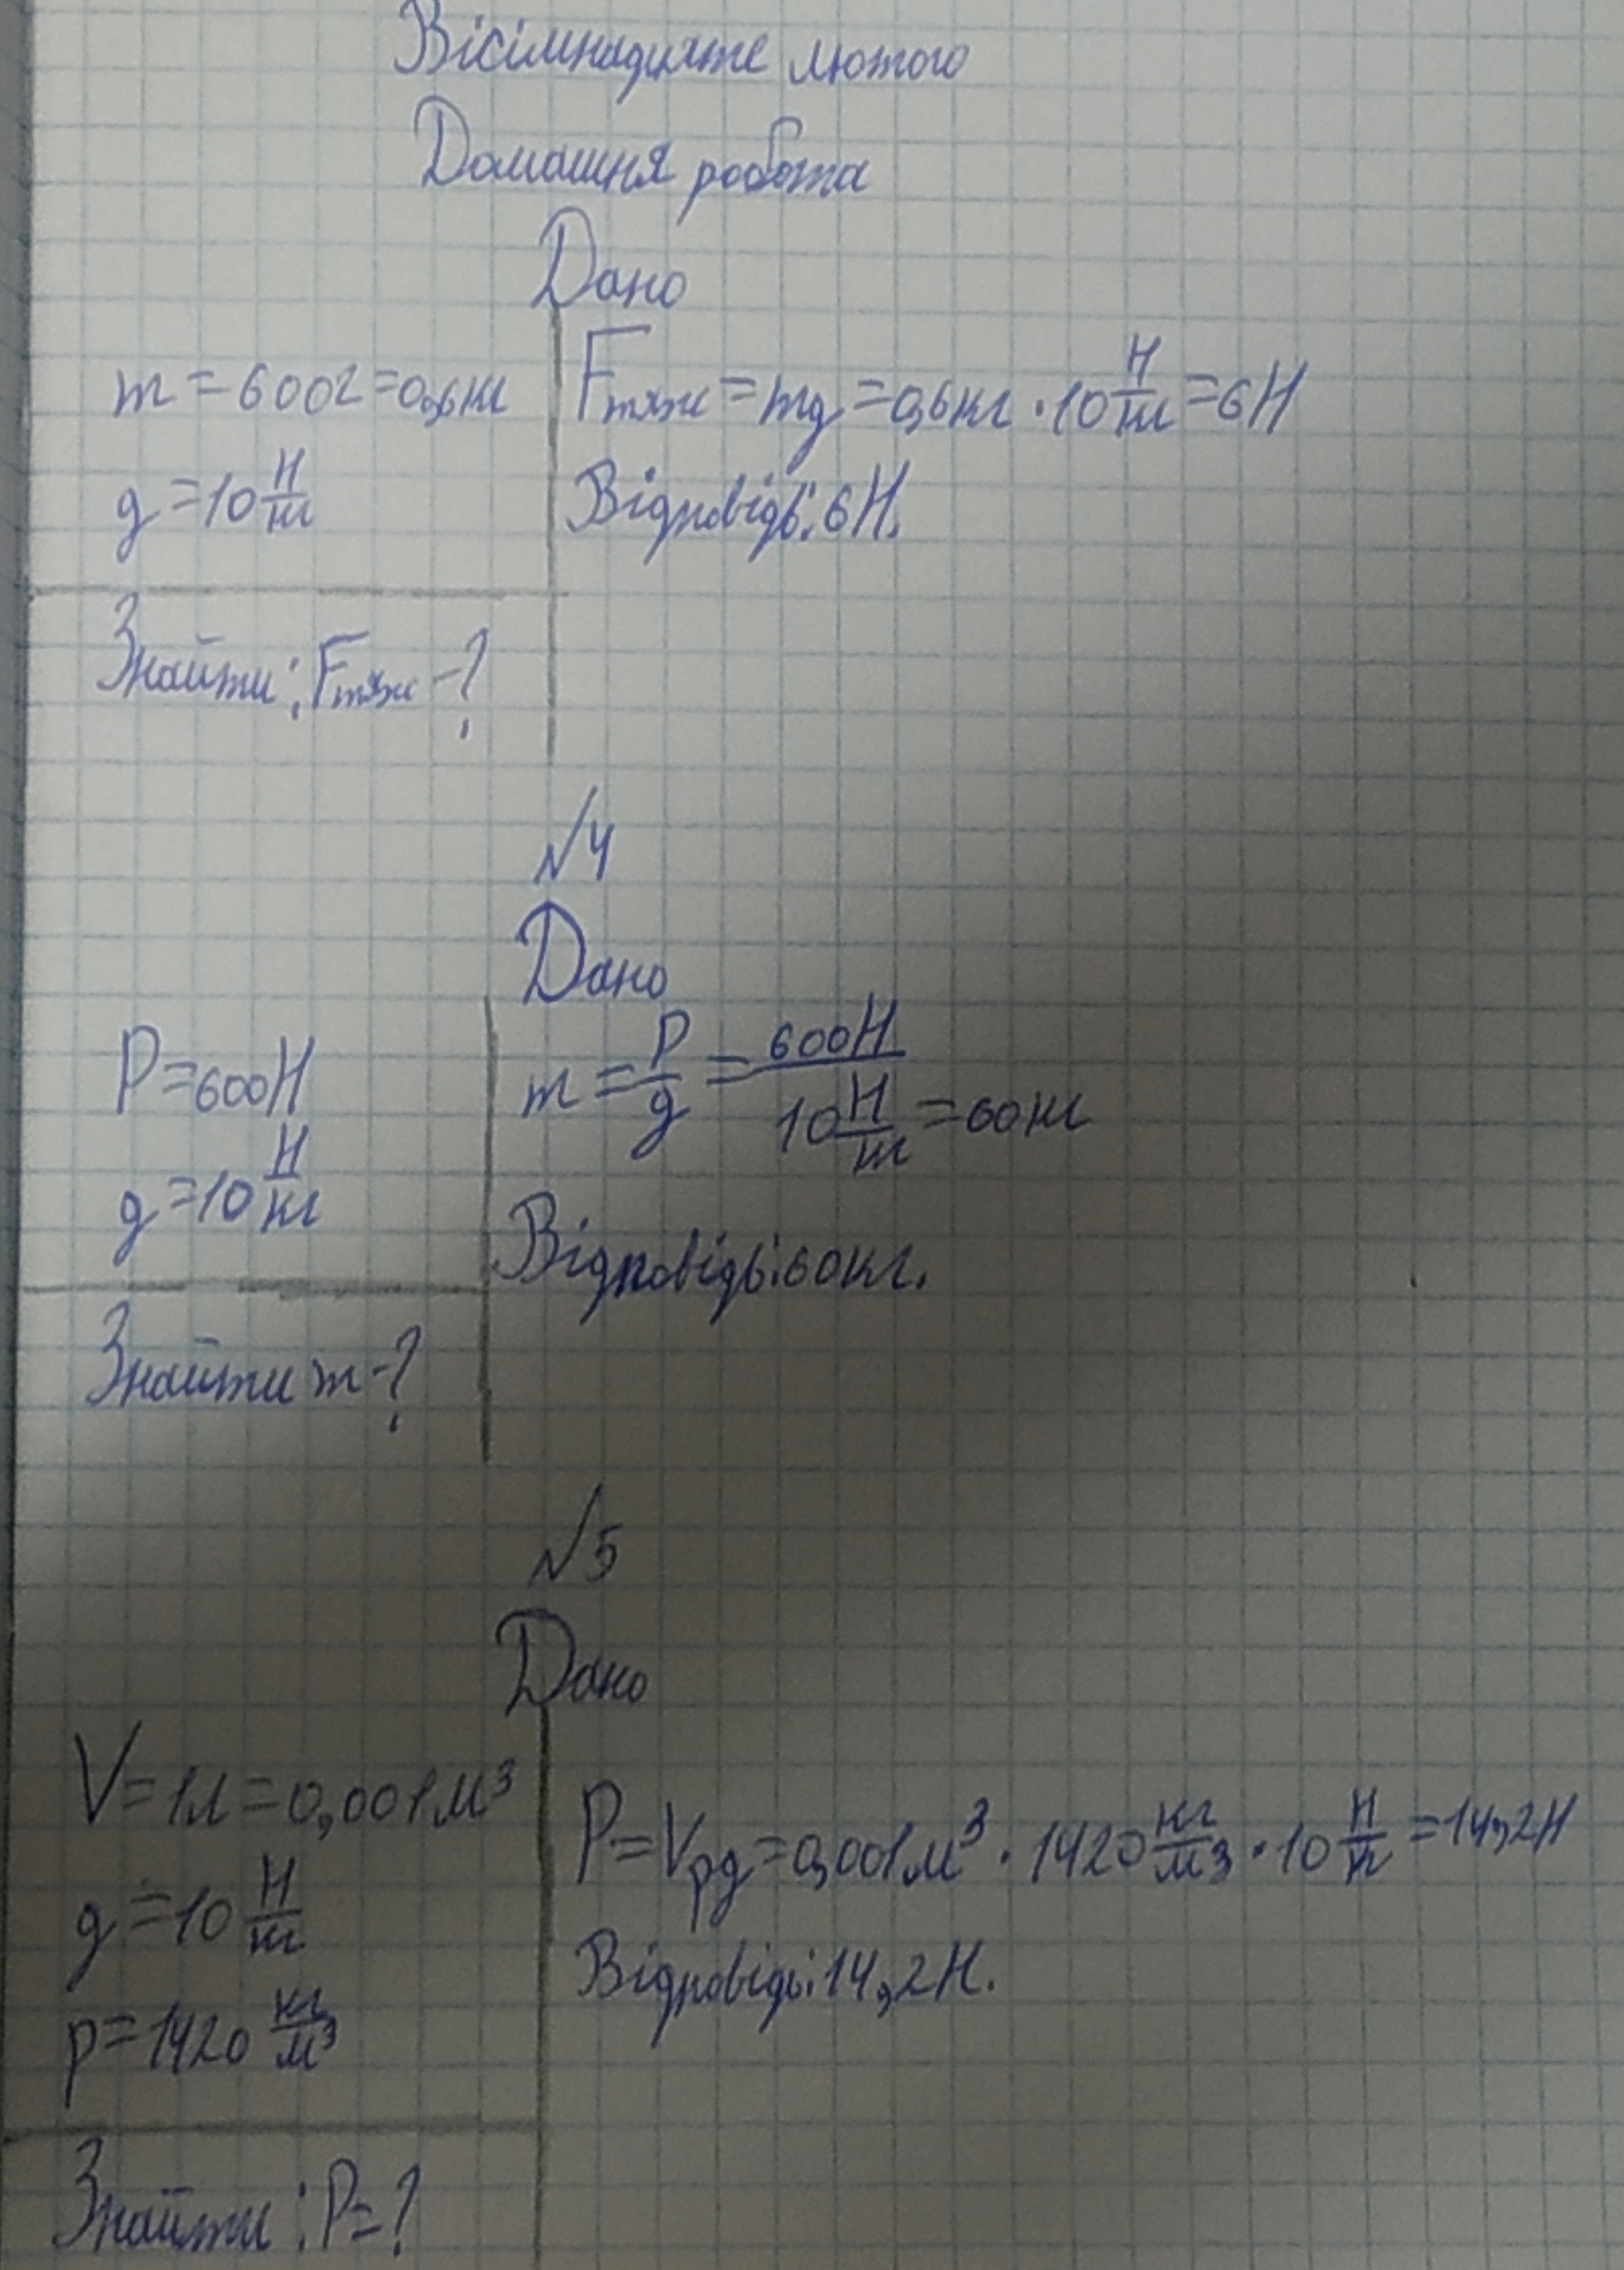 Вісімнадцяте лютого
Домашня робота
Дано
m = 600г = 0,6кг
g = 10 Н/кг
Знайти: Fтяж - ?
Fтяж = mg = 0,6кг · 10 Н/кг = 6Н
Відповідь: 6Н.
№4
Дано
P = 600Н
g = 10 Н/кг
Знайти m - ?
m = P/g = 600Н / 10 Н/кг = 60кг
Відповідь: 60кг.
№5
Дано
V = 1л = 0,001м³
g = 10 Н/кг
p = 1420 кг/м³
Знайти: P = ?
P = Vpg = 0,001м³ · 1420 кг/м³ · 10 Н/к = 14,2Н
Відповідь: 14,2Н.